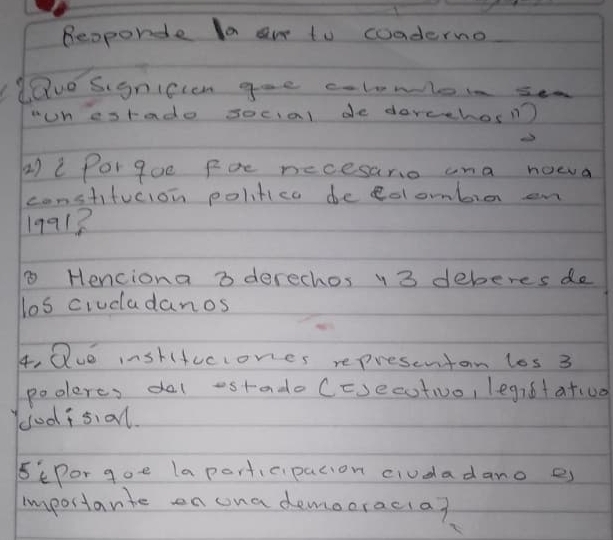 Responde la en tu cuaderno
¿Qué significan que colombia sea
"un estado social de derechos"?
2) ¿ Por que fue necesario una nueva
constitución politica de colombia en
1991?
3 Menciona 3 derechos y 3 deberes de
los ciudadanos
4, Qué instituciones representan los 3
poderes del estado (Ejecutivo, legistativo
Judisial.
5 ¿Por que la participacion ciudadano es
importante en una democracia?